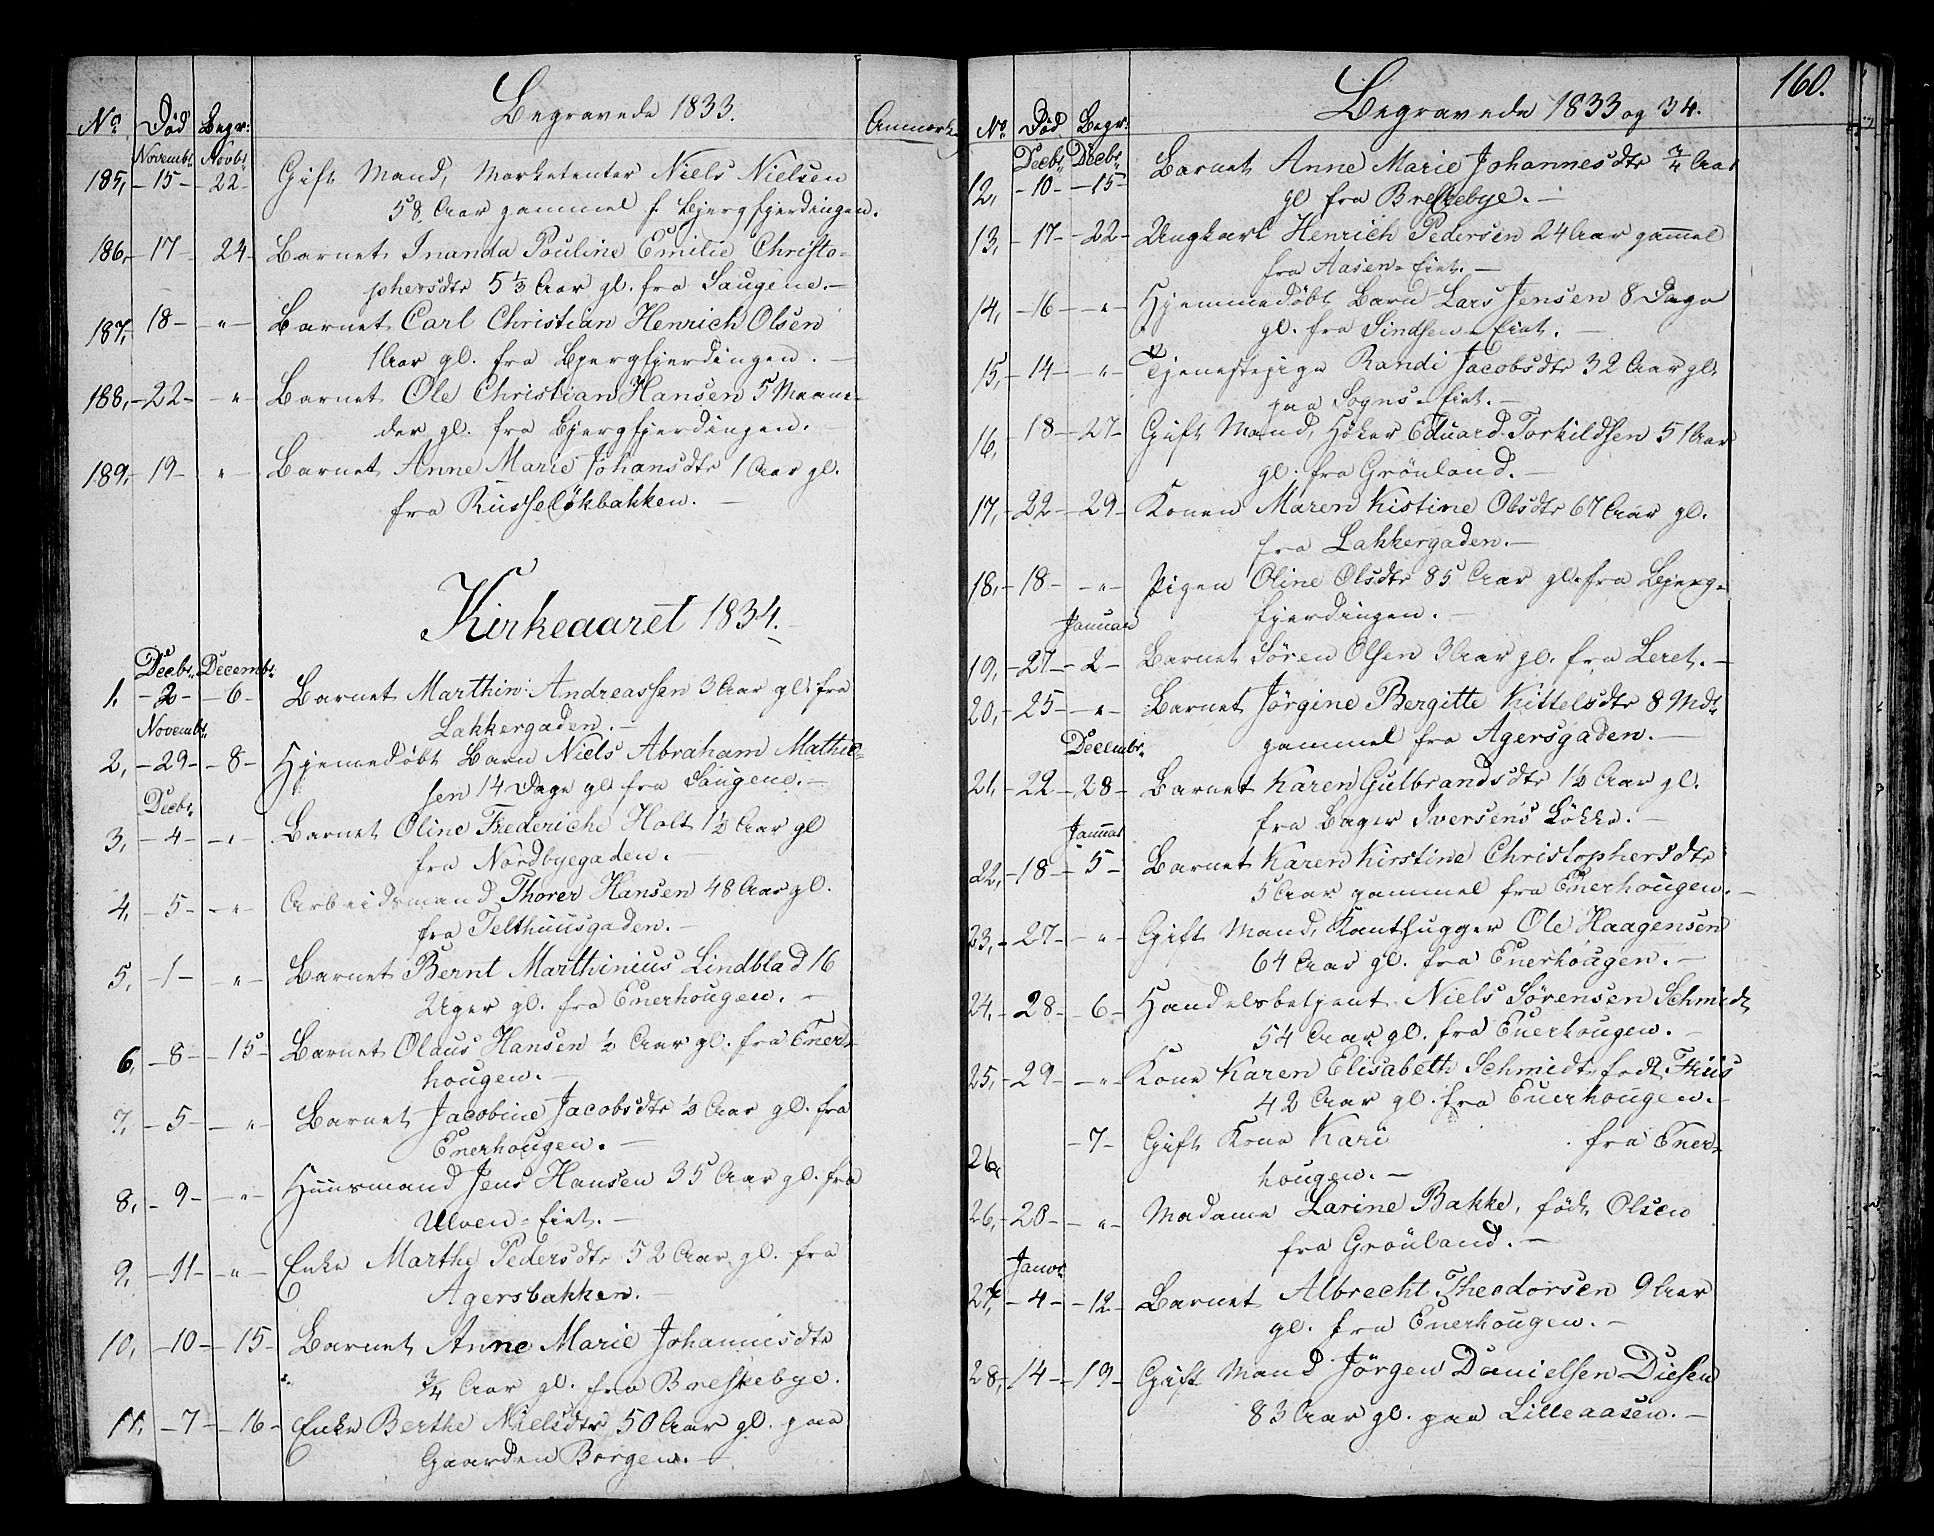 Begravede 1833.
No Død Begr: Anmærk.
Novembr. Novbr.
185, -15- 22- Gift Mand, Marketenter Niels Nielsen
58 Aar gammel f. Bjergfjerdingen.
186,- 17- 24- Barnet Inanda Pouline Emilie Christo-
phersdtr 5 1/3 Aar gl. fra Saugene.-
187, 18- -"- Barnet Carl Christian Henrich Olsen
1 Aar gl. fra Bjergfjerdingen.-
188,- 22- -"- Barnet Ole Christian Hansen 5 Maane-
der gl. fra Bjergfjerdingen.
189,- 19- " Barnet Anne Marie Johansdtr 1 Aar gl.
fra Russeløkbakken.-
Kirkeaaret 1834.
Decbr. Decembr.
1. -2- -6- Barnet Marthin Andreassen 3 Aar gl. fra
Lakkergaden.-
Novembr.
2,- 29- -8- Hjemedøbt Barn Niels Abraham Mathie-
sen 14 Dage gl fra Saugene.-
Decbr.
3, -4- -"- Barnet Oline Frederiche Holt 1½ Aar gl
fra Nordbyegaden.-
4, -5- -"- Arbeidsmand Thorer Hansen 48 Aar gl.
fra Telthuusgaden.-
5, -1- -"- Barnet Bernt Marthinius Lindblad 16
Uger gl. fra Enerhougen.-
6, -8- -15- Barnet Olaus Hansen ½ Aar gl. fra Ener-
hougen.-
7, -5- -"- Barnet Jacobine Jacobsdtr ½ Aar gl. fra
Enerhougen.-
8, -9- -"- Huusmand Jens Hansen 35 Aar gl. fra
Ulven-Eiet.-
9, -11- -"- Enke Marthe Pedersdtr 52 Aar gl. fra
Agersbakken.-
10, -10- -15- Barnet Anne Marie Johannisdtr
¾ Aar gl. fra Breskebye.
11, -7- -16- Enke Berthe Nielsdtr 50 Aar gl. paa
Gaarden Borgen.-
160.
Begravede 1833 og 34.
No Død Begr:
Decbr. Decbr.
12, -10- -15- Barnet Anne Marie Johannesdtr ¾ Aar
gl fra Breskebye.-
13, -17- -22- Ungkarl Henrich Pedersen 24 Aar gammel
fra Aasen-Eiet.-
14, -16- -"- Hjemmedøbt Barn Lars Jensen 8 Dage
gl. fra Sindsen-Eiet.-
15, -14- -"- Tjenestepige Randi Jacobsdtr 32 Aar gl.
paa Sogns-Eiet.-
16, -18- -27- Gift Mand, Høker Eduard Torkildsen 51 Aar
gl. fra Grønland.-
17, -22- -29- Konen Maren Kistine Olsdtr 67 Aar gl.
fra Lakkergaden.-
18, -18- -"- Pigen Oline Olsdtr 85 Aar gl. fra Bjerg-
fjerdingen.-
Januar
19, -27- -2- Barnet Søren Olsen 3 Aar gl. fra Leret.-
20, -25- -"- Barnet Jørgine Bergitte Kittelsdtr 8 Mdr
gammel fra Agersgaden.-
Decembr.
21, -22- -28- Barnet Karen Gulbrandsdtr 1½ Aar gl.
fra Bager Iversens Løkke.-
Januar
22, -18- -5- Barnet Karen Kirstine Christophersdtr
5 Aar gammel fra Enerhougen.-
23, -27- -"- Gift Mand, Kanthugger Ole Haagensen
64 Aar gl. fra Enerhougen.-
24, -28- -6- Handelsbetjent Niels Sørensen Schmidt
54 Aar gl. fra Enerhougen.-
25, -29- -"- Kone Karen Elisabeth Schmidt, født Thiis
42 Aar gl. fra Enerhougen.-
26, -7- Gift Kone Kari . fra Ener-
hougen.-
26, -20- -"- Madame Larine Bakke, født Olsen
fra Grønland.-
Janvr.
27, -4- -12- Barnet Albrecht Theodorsen 9 Aar
gl. fra Enerhougen.-
28, -14- -19- Gift Mand Jørgen Danielsen Diesen
83 Aar gl. paa Lilleaasen.-